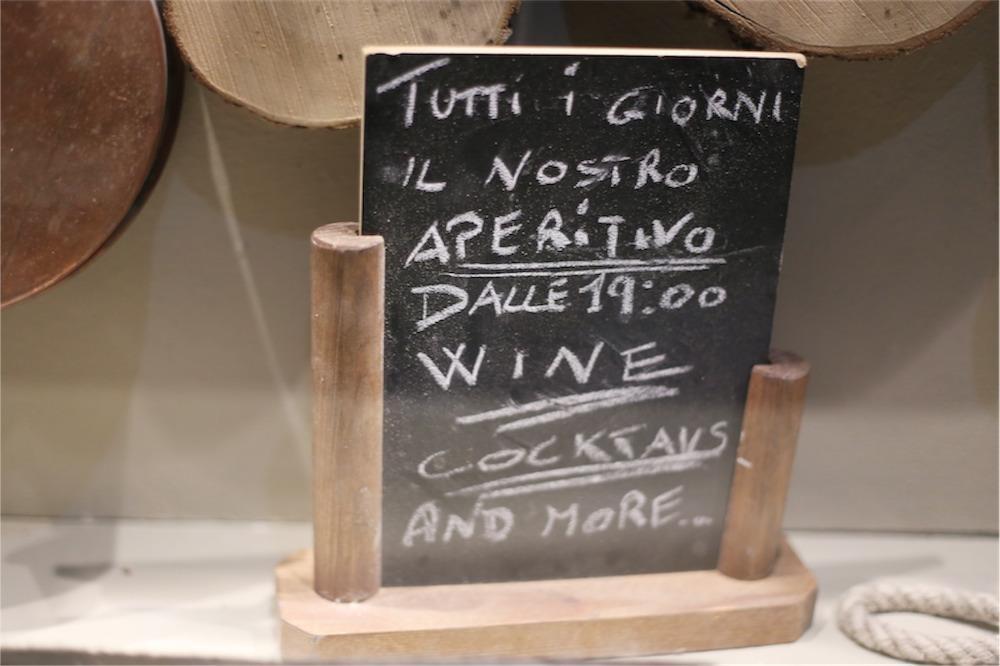 TUTTi i GIORNI
IL NOSTRO
APERiTiVO
DALLE 19:00
WINE
COCKTAILS
AND MORE...